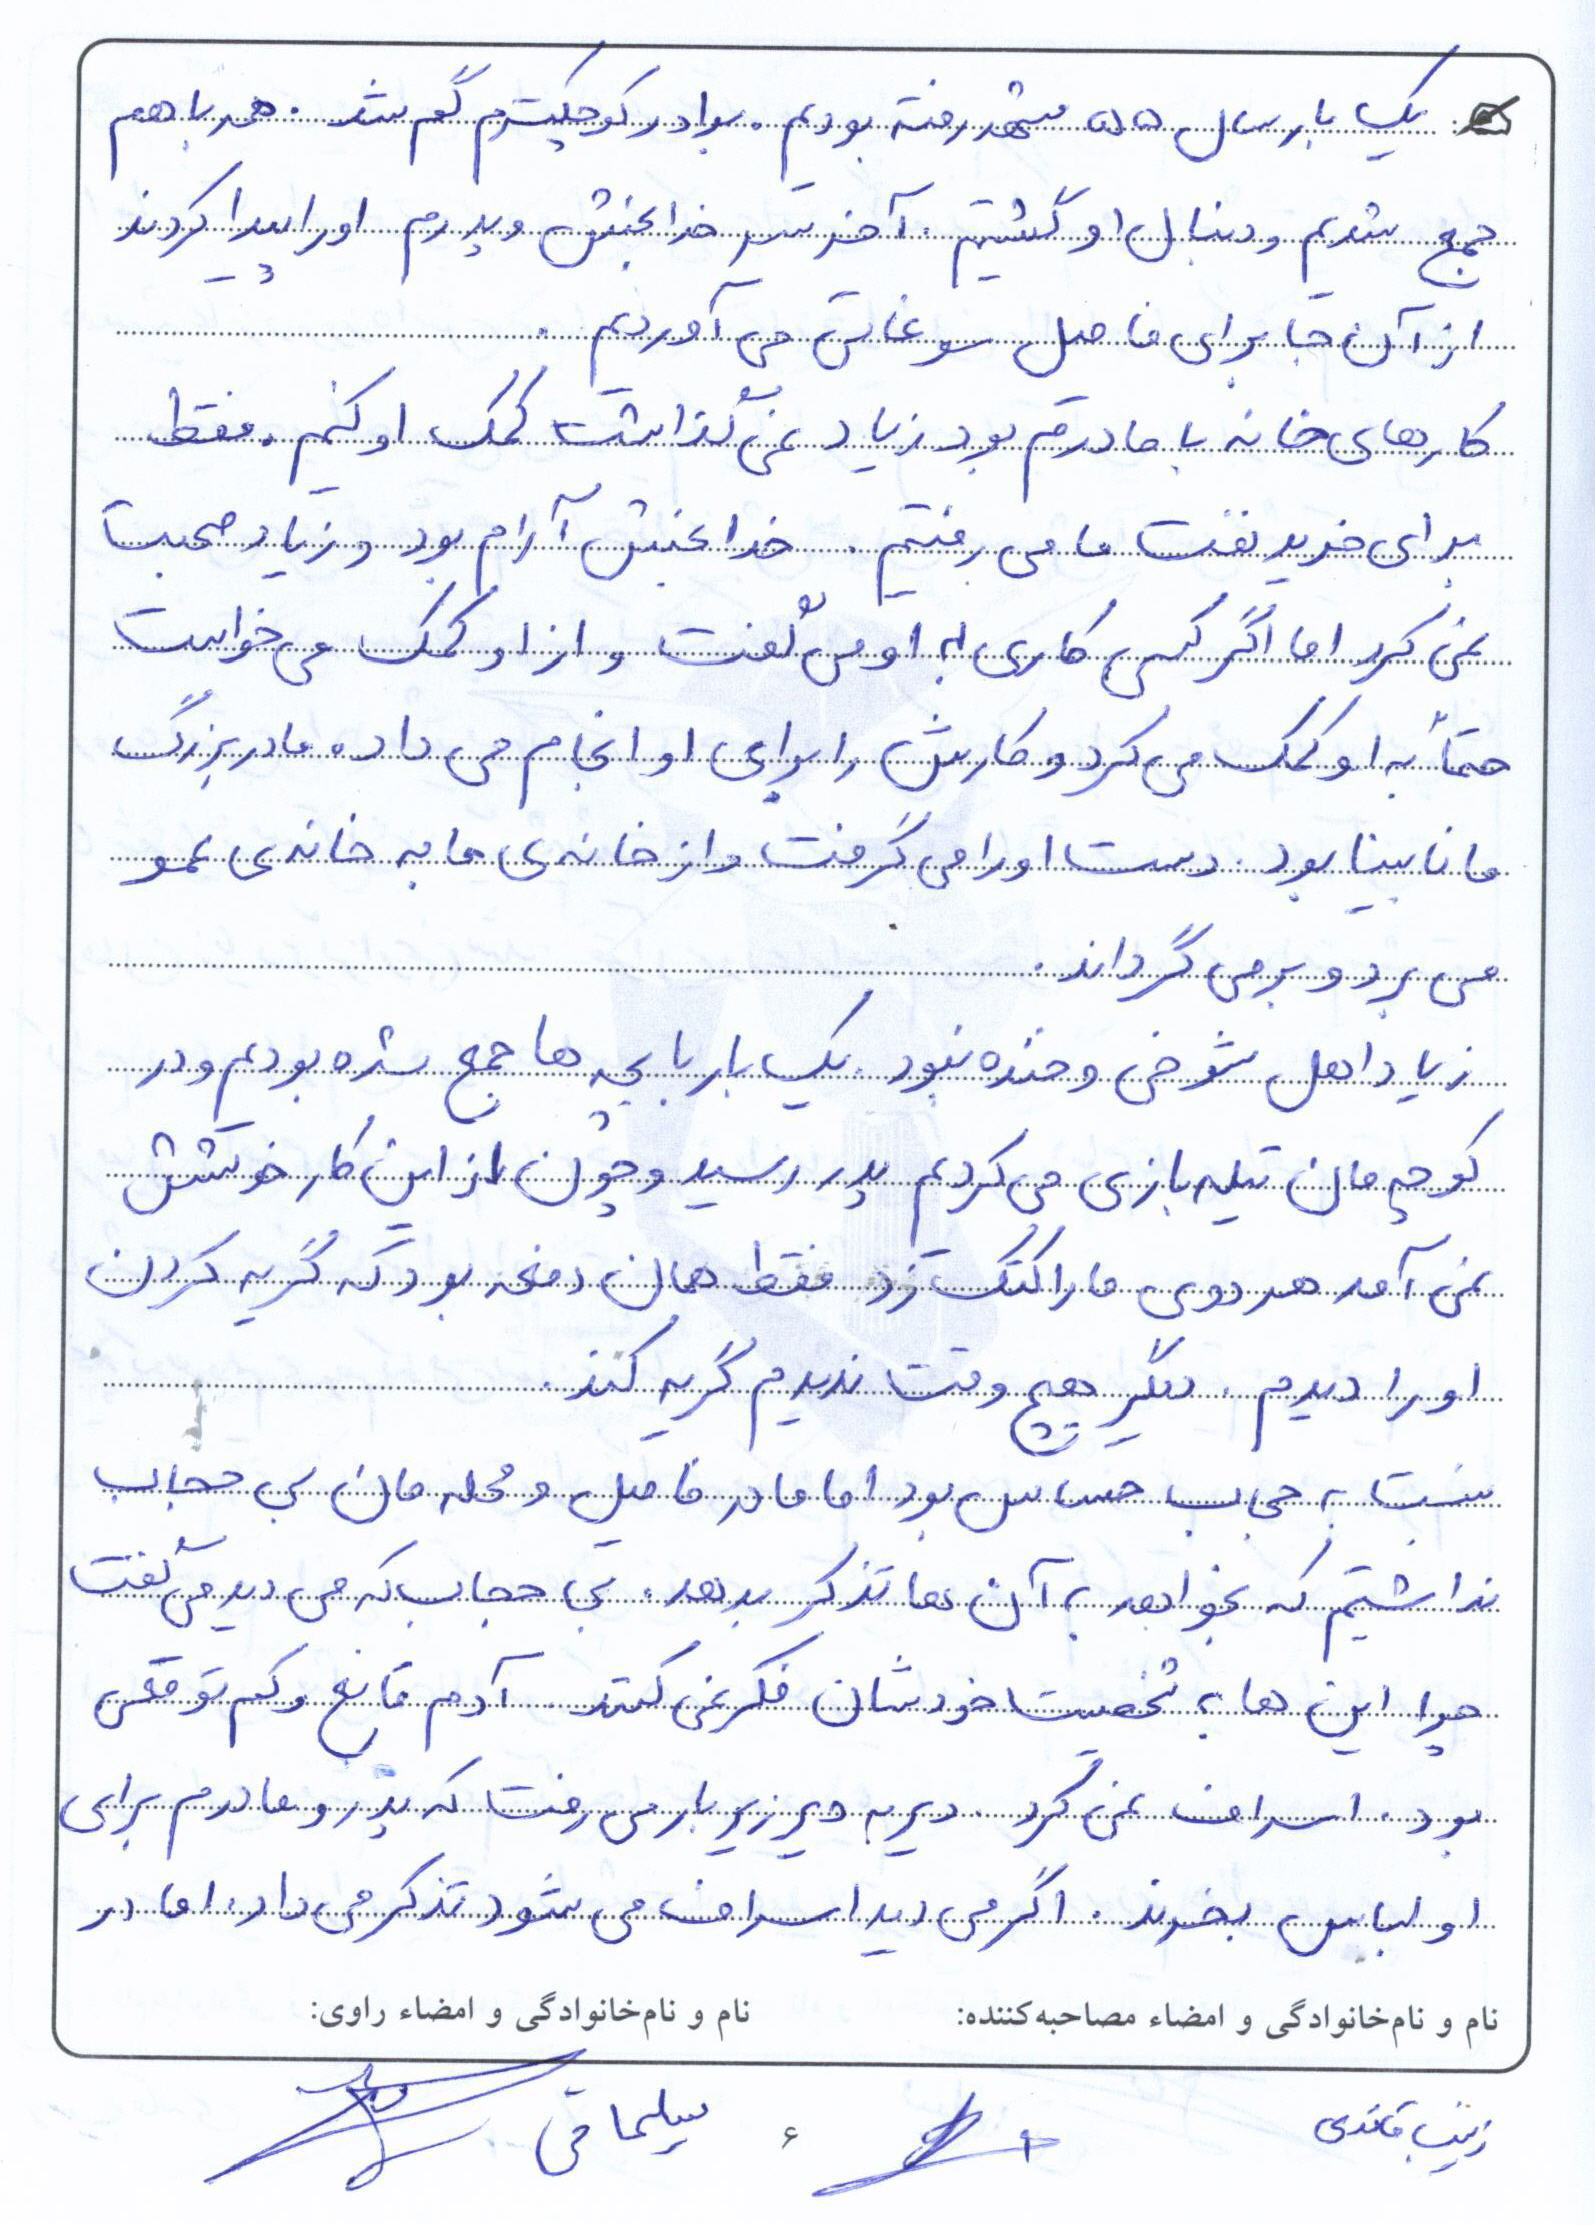 یک بار سال ۵۵ مشهد رفته بودیم. برادر کوچکترم گم شد. همه با هم
جمع شدیم و دنبال او گشتیم. آخر سر خدابخش و پدرم او را پیدا کردند
از آن جا برای فامیل سوغاتی می آوردیم.
کارهای خانه با مادرم بود زیاد نمی گذاشت کمک او کنیم. فقط
برای خرید نفت ما می رفتیم. خدابخش آرام بود و زیاد صحبت
نمی کرد اما اگر کسی کاری به او می گفت و از او کمک می خواست
حتماً به او کمک می کرد و کارش را برای او انجام می داد. مادربزرگ
ما نابینا بود. دست او را می گرفت و از خانه ی ما به خانه ی عمو
می برد و برمی گرداند.
زیاد اهل شوخی و خنده نبود. یک بار با بچه ها جمع شده بودیم و در
کوچه مان تیله بازی می کردیم پدر رسید و چون از این کار خوشش
نمی آمد هر دوی ما را کتک زد فقط همان دفعه بود که گریه کردن
او را دیدم. دیگر هیچ وقت ندیدم گریه کند.
نسبت به حجاب حساس بود اما ما در فامیل و محله مان بی حجاب
نداشتیم که بخواهد به آن ها تذکر بدهد. بی حجاب که می دید می گفت
چرا این ها به شخصیت خودشان فکر نمی کنند. آدم قانع و کم توقعی
بود. اسراف نمی کرد. دیر به دیر زیر بار می رفت که پدر و مادرم برای
او لباس بخرند. اگر می دید اسراف می شود تذکر می داد. اما در
نام و نام‌خانوادگی و امضاء مصاحبه‌کننده: نام و نام‌خانوادگی و امضاء راوی:
زینب قائدی ۶ سلیمانی